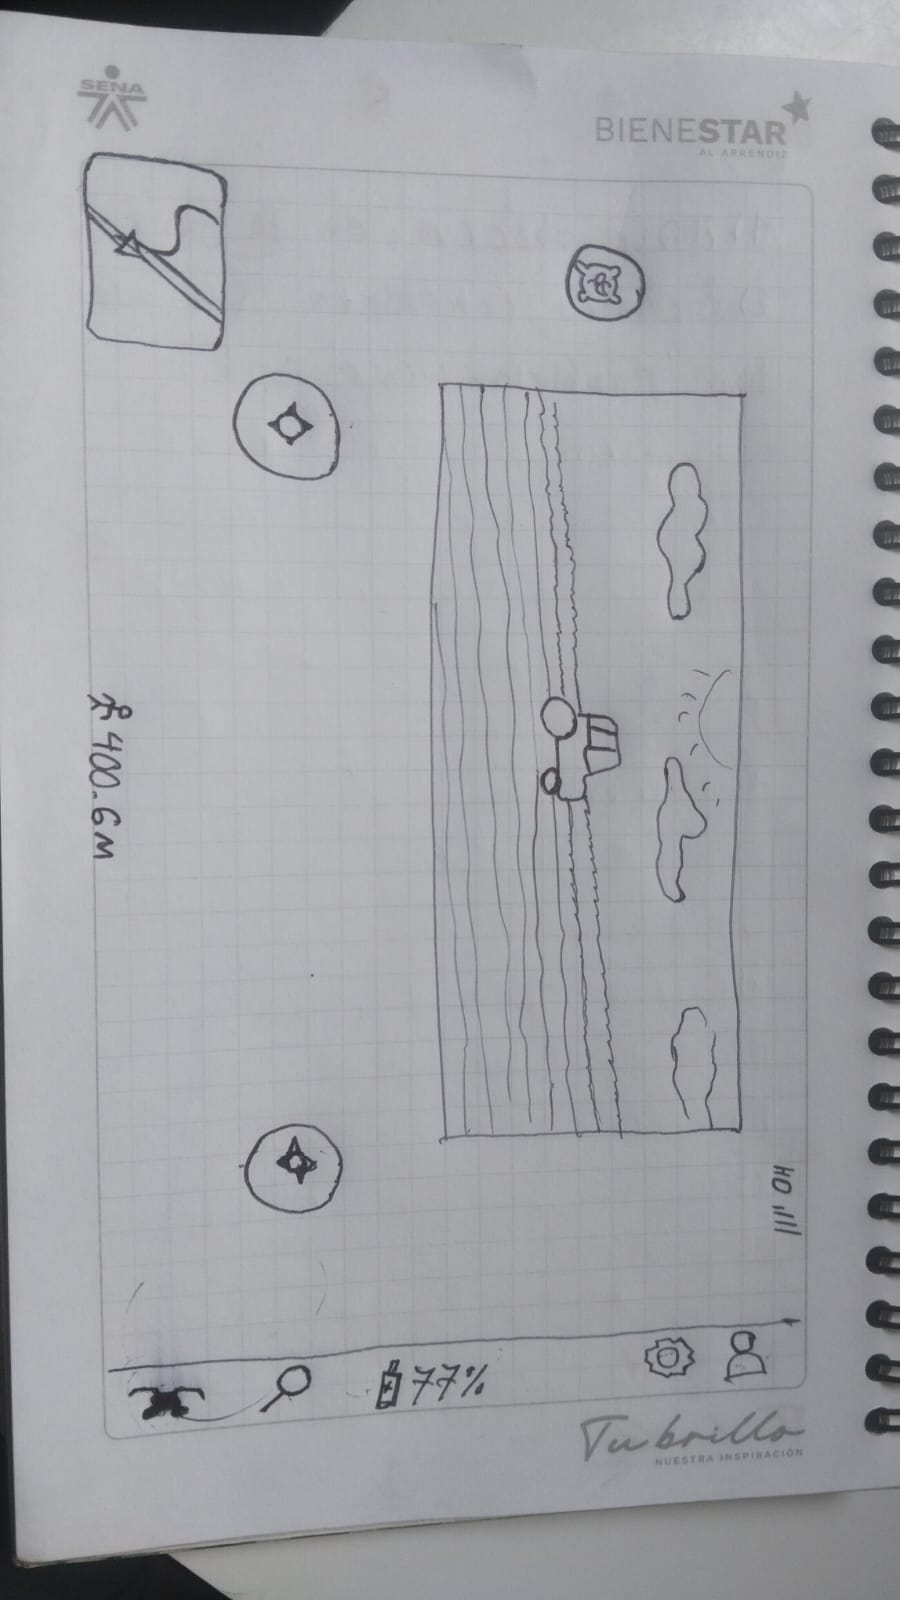 SENA
BIENESTAR
AL APRENDIZ
400.6M
77%
Tu brillo
NUESTRA INSPIRACIÓN